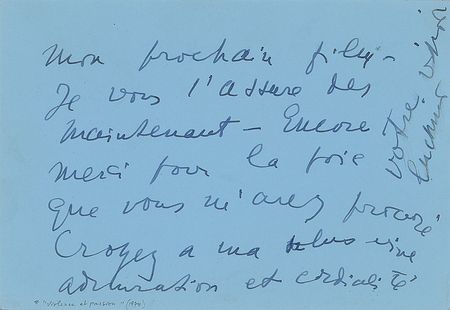 mon prochain film –
Je vous l'assure des
maintenant – Encore
merci pour la joie
que vous m'avez procuré
Croyez a ma plus vive
admiration et cordialité
votre
Luchino Visconti
* "violence et passion" (1974)